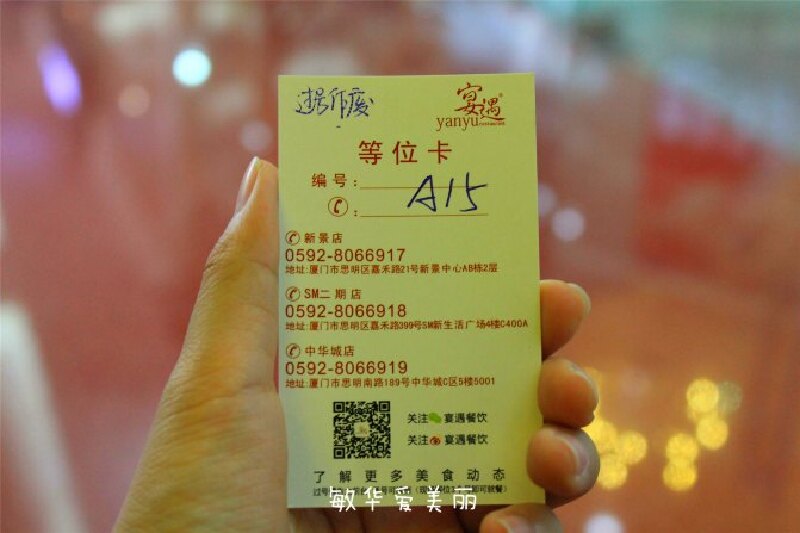 过号作废
宴遇
yanyu
等位卡
编号：
A15
：
新景店
0592-8066917
地址:厦门市思明区嘉禾路21号新景中心AB栋2层
SM二期店
0592-8066918
地址:厦门市思明区嘉禾路399号SM新生活广场4楼C400A
中华城店
0592-8066919
地址:厦门市思明南路189号中华城C区5楼5001
关注 宴遇餐饮
关注 宴遇餐饮
了解更多美食动态
敏华爱美丽